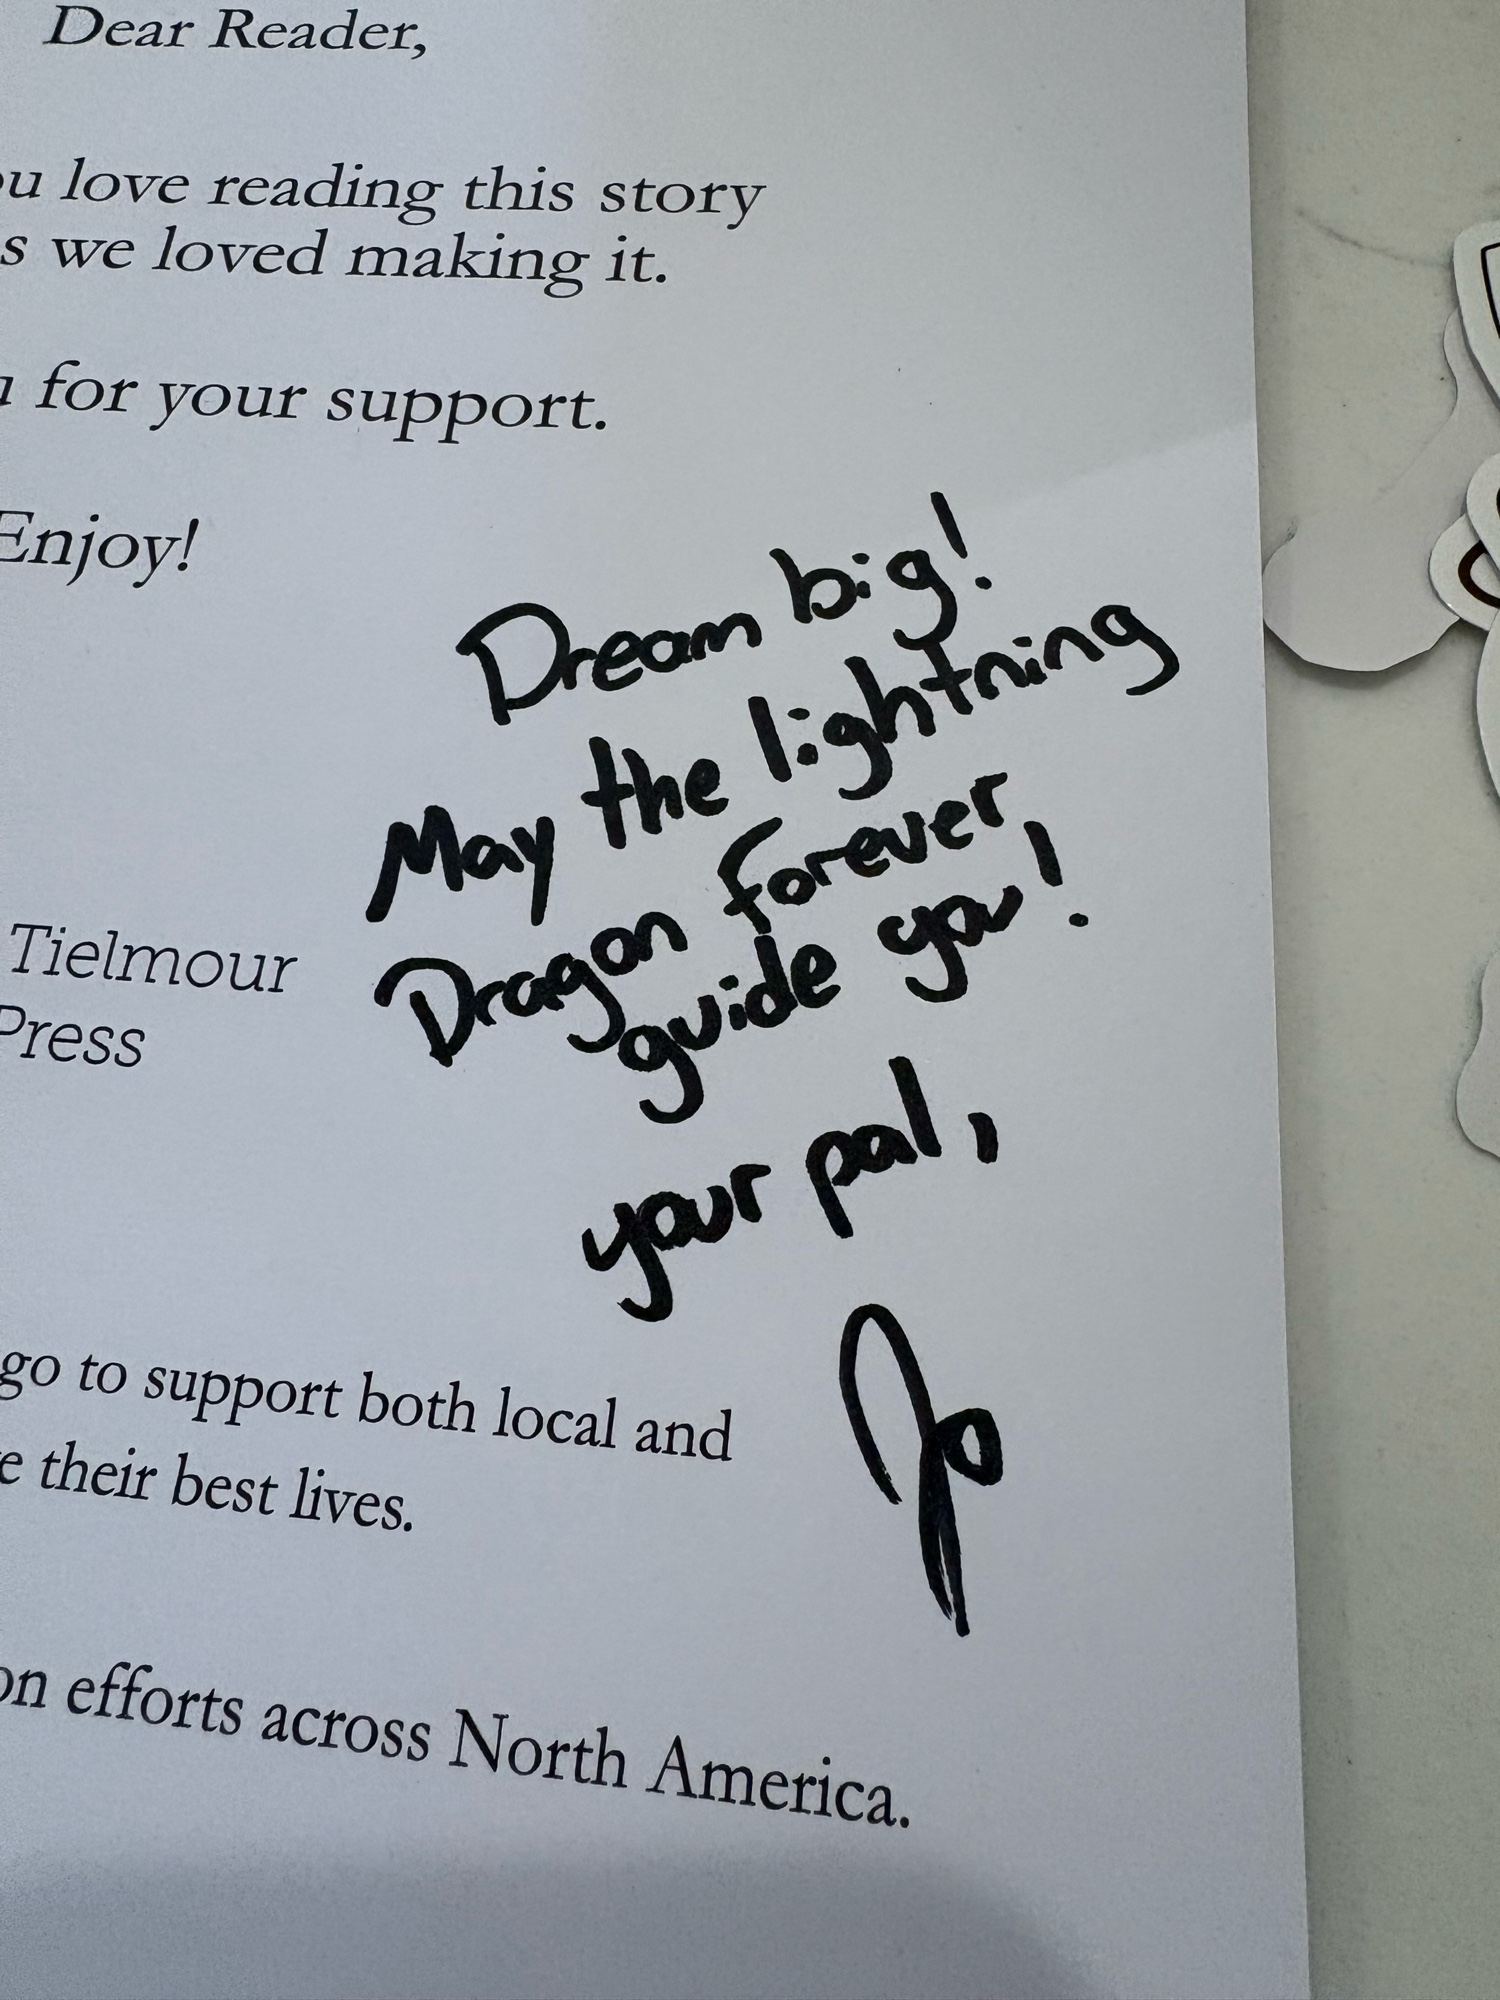 Dear Reader,
love reading this story
we loved making it.
for your support.
Enjoy!
Dream big!
May the lightning
Dragon forever
guide you!
your pal,
Jo
Tielmour
Press
go to support both local and
their best lives.
efforts across North America.